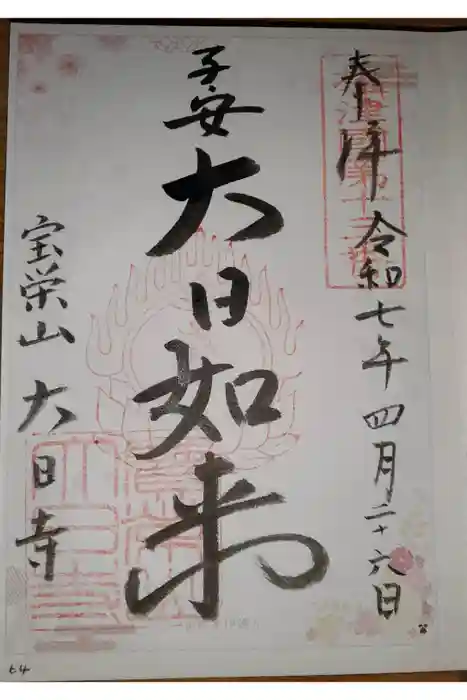 奉拝 令和七年四月二十六日
子安
大日如来
宝栄山 大日寺